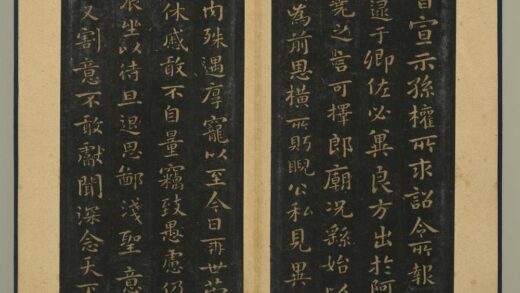 宣示孫權所求詔令所報
逮于卿佐必冀良方出於阿
蕘之言可擇郎廟况繇始以
為前恩橫所眄睨公私見異
肉殊遇厚寵以至今日再世榮
休戚敢不自量竊致愚慮仍
晨坐以待旦退思鄙淺聖意
又割意不敢獻聞深念天下